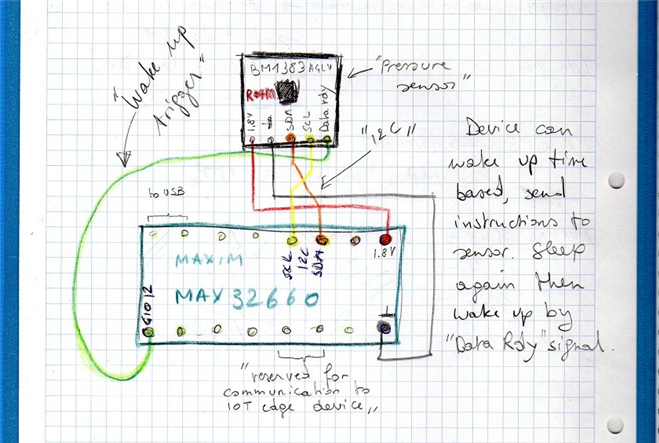 "Wake up
trigger"
BM1383AGLV
ROHM
1.8V
SDA
SCL
Data rdy
"Pressure
sensor"
"I2C"
Device can
wake up time
based, send
instructions to
sensor. Sleep
again then
wake up by
"Data Rdy" signal.
to USB
SCL
I2C
SDA
1.8V
MAXIM
MAX32660
"reserved for
communication to
IOT edge device"